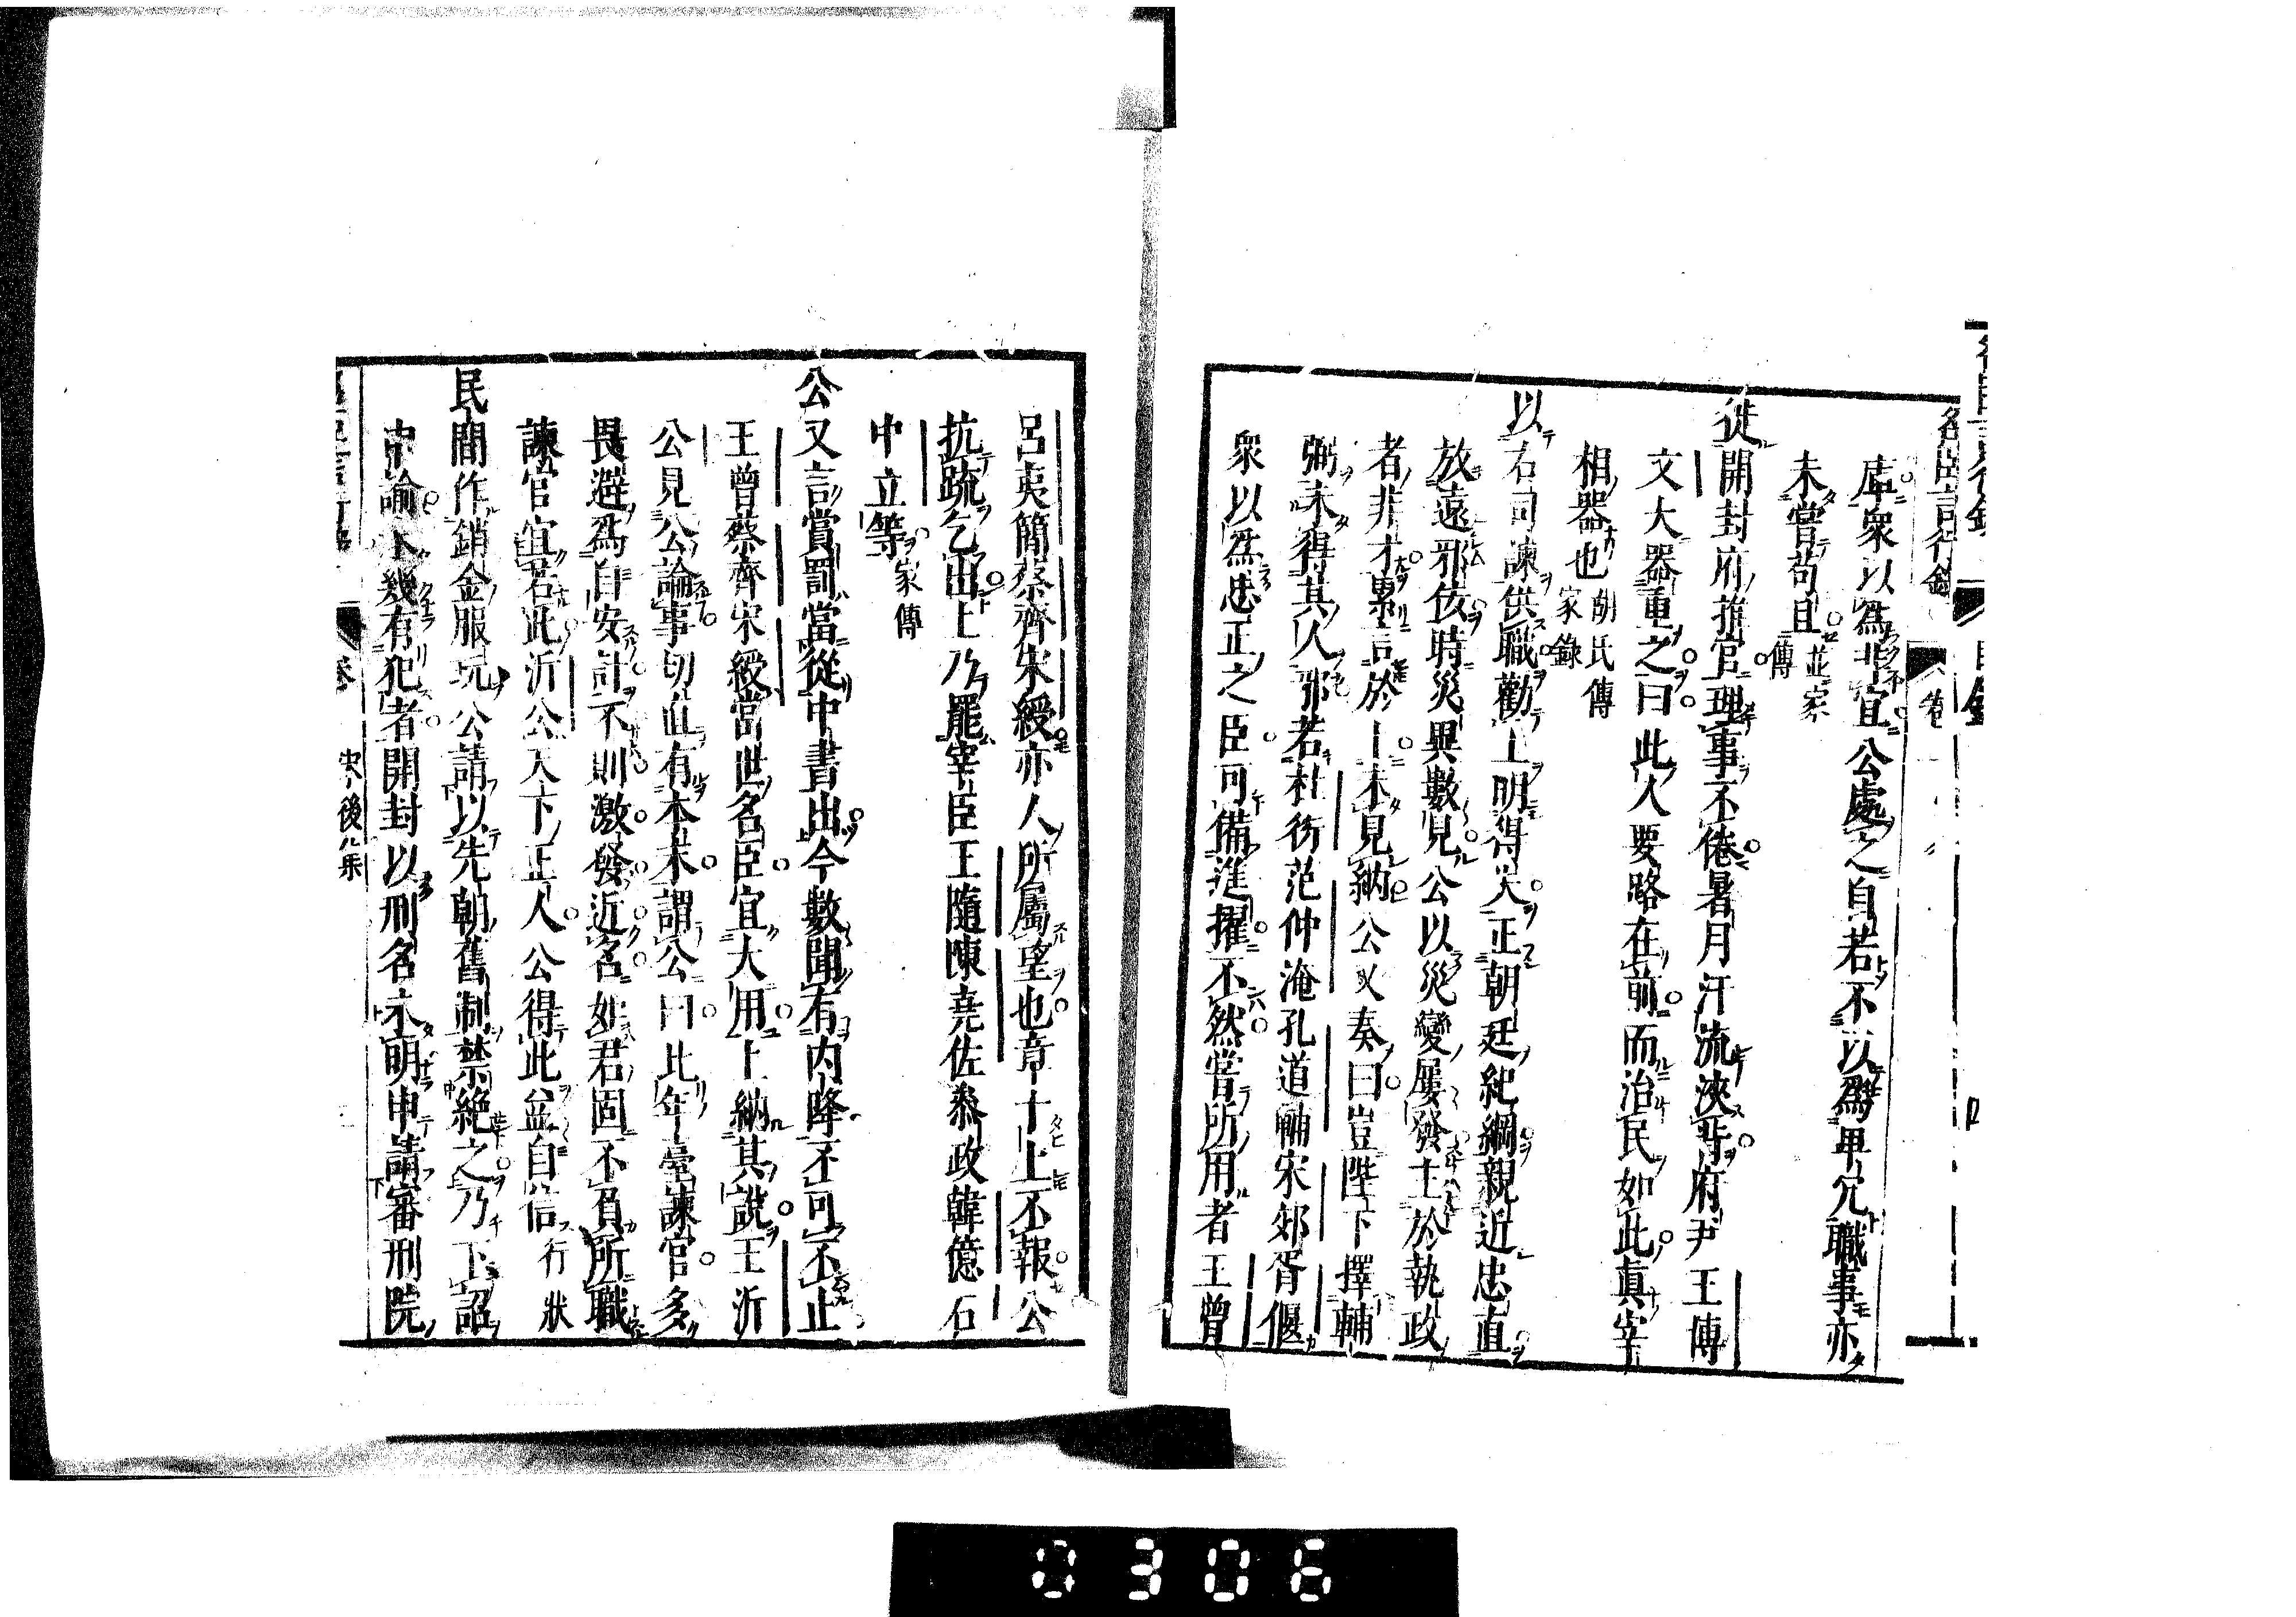 名臣言行錄
庫衆以爲非宜公處之自若不以爲卑冗職事亦
未嘗苟且並家傳
從開封府推官理事不倦暑月汗流浹背府尹王傳
文大器重之曰此人要路在前而治民如此眞宰
相器也胡氏傳家錄
以右司諫供職勸上明得失正朝廷紀綱親近忠直
放遠邪佞時災異數見公以災變屢發主於執政
者非才累言於上未見納公又奏曰豈陛下擇輔
弼未得其人邪若杜衍范仲淹孔道輔宋郊胥偃
衆以爲忠正之臣可備進擢不然嘗所用者王曾
呂夷簡蔡齊宋綬亦人所屬望也章十上不報公
抗疏乞出上乃罷宰臣王隨陳堯佐叅政韓億石
中立等家傳
公又言賞罰當從中書出今數聞有内降不可不止
王曾蔡齊宋綬當世名臣宜大用上納其說王沂
公見公論事切直有本末謂公曰比年臺諫官多
畏避爲自安計不則激發近名如君固不負所職
諫官宜若此沂公天下正人公得此益自信行狀
民間作銷金服玩公請以先朝舊制禁絶之乃下詔
申諭未幾有犯者開封以刑名未明申請審刑院
宋後集
0306